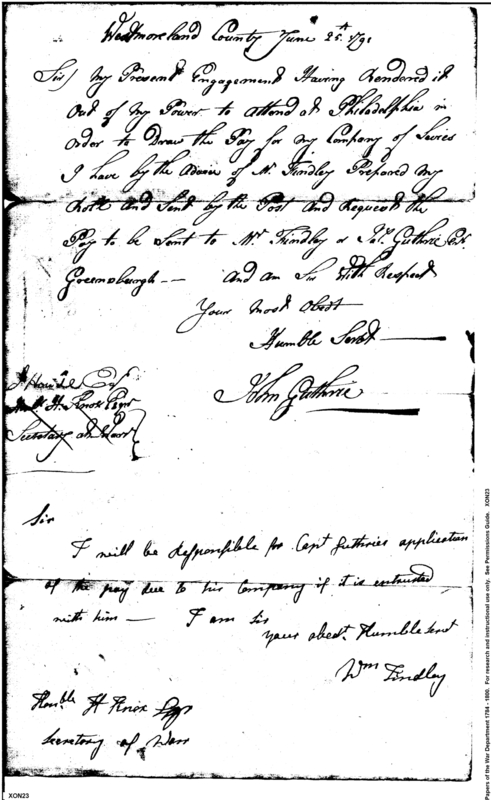 Westmoreland County June 25th 1791
Sir/ My Present Engagement Having Rendered it
Out of My Power to attend at Philadelphia in
order to Draw the Pay for my Company of
I have by the Advice of Mr. Findley Prepared my
Role and Sent by the Post and Request the
Pay to be Sent to Mr Findley or Guthrie
Greensburgh — and am Sir With Respect
Your Most Obedt
Humble Servt
John Guthrie
H. Knox Esqr
Secretary at Warr
Sir
I will be Responsible for Capt Guthries application
of the pay due to his Company if it is entrusted
with him — I am Sir
your obedt. Humble Servt
Wm Findley
Honble H Knox Esqr
Secretary of Warr
XON23
Papers of the War Department 1784 - 1800. For research and instructional use only. See Permissions Guide. XON23